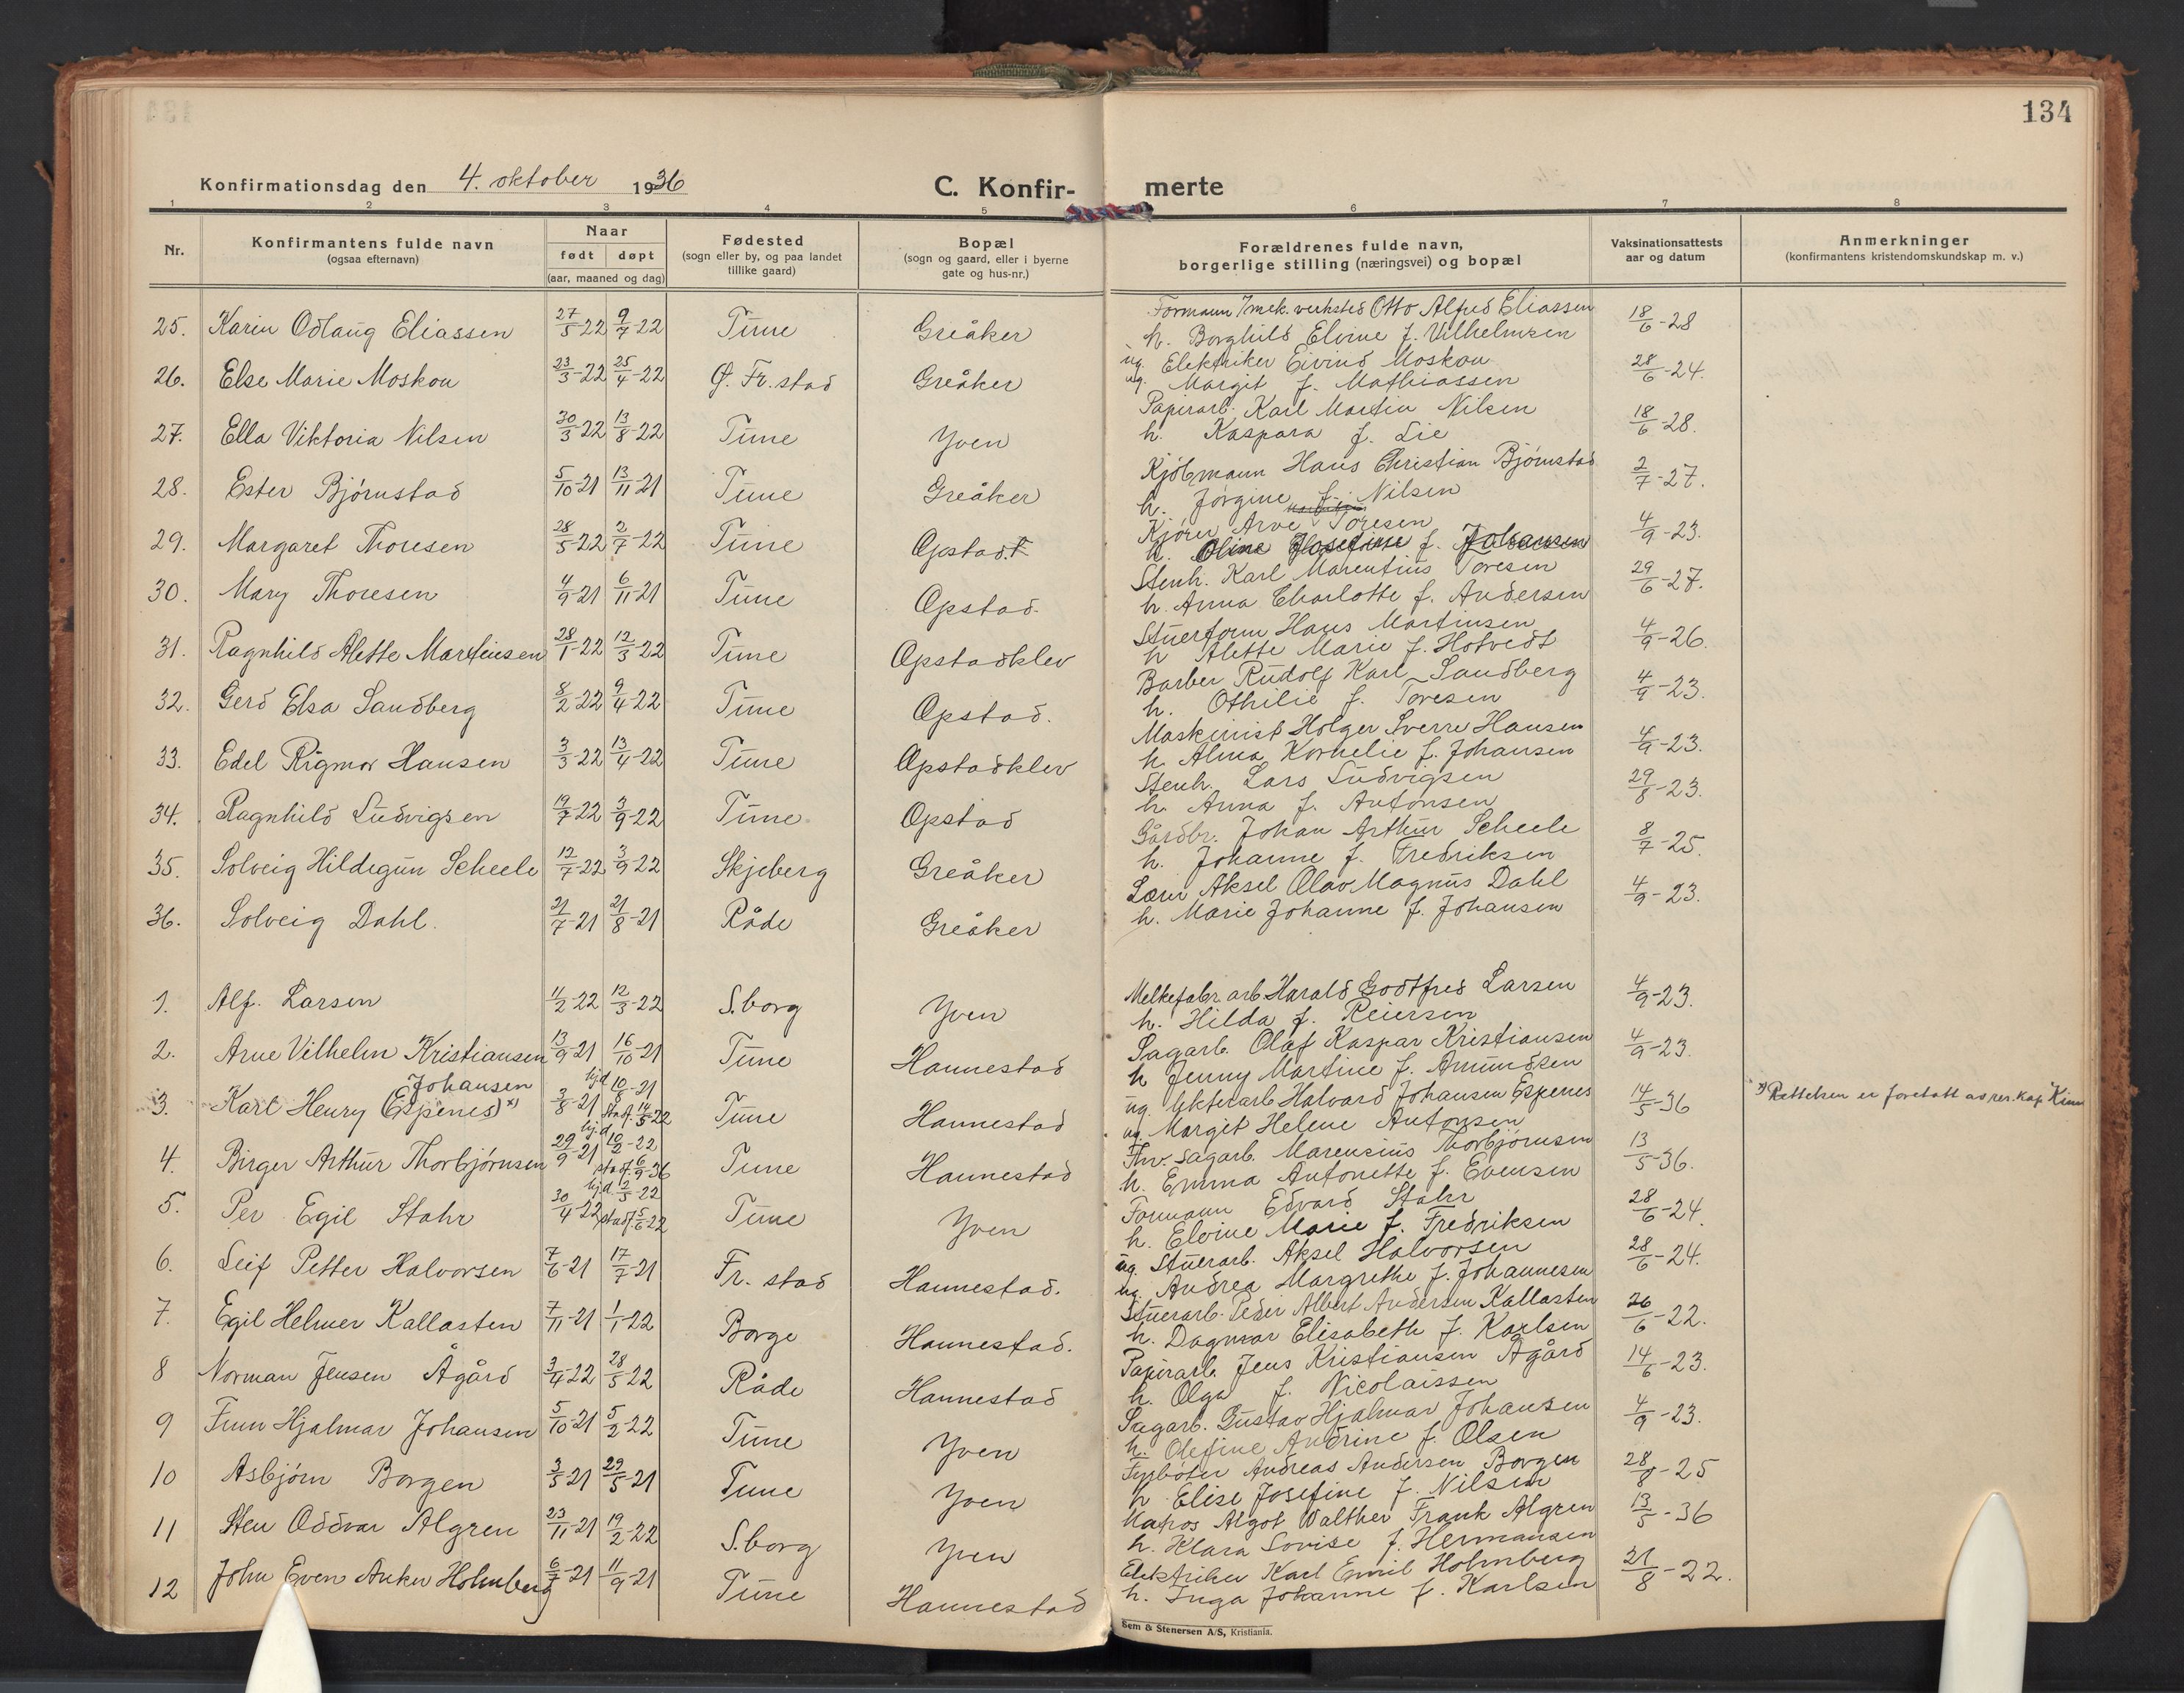 134
Konfirmationsdag den 4. oktober 1936
C. Konfir- merte
1 2 3 4 5 6 7 8
Nr. Konfirmantens fulde navn (ogsaa efternavn) Naar født døpt (aar, maaned og dag) Fødested (sogn eller by, og paa landet tillike gaard) Bopæl (sogn og gaard, eller i byerne gate og hus-nr.) Forældrenes fulde navn, borgerlige stilling (næringsvei) og bopæl Vaksinationsattests aar og datum Anmerkninger (konfirmantens kristendomskundskap m. v.)
25. Karin Odlaug Eliassen 27/5-22 9/7-22 Tune Greåker Formann / mek. verksted Otto Alfred Eliassen 18/6-28
h. Borghild Elvine f. Vilhelmsen
26. Else Marie Moskou 23/3-22 25/4-22 Ø. Fr.stad Greåker ug. Elektriker Eivind Moskou 28/6-24.
ug. Margit f. Mathiassen
27. Ella Viktoria Nilsen 30/3-22 13/8-22 Tune Yven Papirarb. Karl Martin Nilsen 18/6-28.
h. Kaspara f. Lie
28. Ester Bjørnstad 5/10-21 13/11-21 Tune Greåker Kjøbmann Hans Christian Bjørnstad 2/7-27.
h. Jørgine f. Nilsen
29. Margaret Thoresen 28/5-22 2/7-22 Tune Opstad Kjører Arve Toresen 4/9-23.
h. Oline Josefine f. Johansen
30. Mary Thoresen 4/9-21 6/11-21 Tune Opstad. Stenh. Karl Marentius Toresen 29/6-27.
h. Anna Charlotte f. Andersen
31. Ragnhild Alette Martinsen 28/1-22 12/3-22 Tune Opstadklev Stuerform Hans Martinsen 4/9-26.
h Alette Marie f. Hotvedt
32. Gerd Elsa Sandberg 8/2-22 9/4-22 Tune Opstad. Barber Rudolf Karl Sandberg 4/9-23.
h. Othilie f. Toresen
33. Edel Rigmor Hansen 3/3-22 13/4-22 Tune Opstadklev Maskinist Holger Sverre Hansen 4/9-23.
h. Alma Kornelie f. Johansen
34. Ragnhild Ludvigsen 19/7-22 3/9-22 Tune Opstad Stenh. Lars Ludvigsen 29/8-23.
h. Anna f. Antonsen
35. Solveig Hildegun Scheele 12/7-22 3/9-22 Skjeberg Greåker Gårdbr. Johan Arthur Scheele 8/7-25.
h. Johanne f. Fredriksen
36. Solveig Dahl. 21/7-21 21/8-21 Råde Greåker Lærer Aksel Olav Magnus Dahl 4/9-23.
h. Marie Johanne f. Johansen
1. Alf. Larsen 11/2-22 12/3-22 S.borg Yven Melkefabr. arb. Harald Godtfred Larsen 4/9-23.
h. Hilda f. Reiersen
2. Arne Vilhelm Kristiansen 13/9-21 16/10-21 Tune Hannestad Sagarb. Olaf Kaspar Kristiansen 4/9-23.
h Jenny Martine f. Amundsen
3. Karl Henry Johansen (Espenes) x) 3/8-21 hjd 10/8-21 stadf. 14/5-22 Tune Hannestad ug. Halvard Johansen Espenes 14/5-36 x) Rettelsen er foretatt av res. kap.
ug. Margit Helene Antonsen
4. Birger Arthur Thorbjørnsen 29/9-21 hjd. 10/2-22 stadf. 6/9-36 Tune Hannestad Fhv. sagarb. Marensius Thorbjørnsen 13/5-36.
h. Emma Antonette f. Evensen
5. Per Egil Stahr 30/4-22 hjd. 2/5-22 stadf. 5/6-22 Tune Yven Formann Edvard Stahr 28/6-24.
h. Elvine Marie f. Fredriksen
6. Leif Petter Halvorsen 7/6-21 17/7-21 Fr. stad Hannestad. ug. Stuerarb. Aksel Halvorsen 28/6-24.
ug. Andrea Margrethe f. Johannesen
7. Egil Helmer Kallasten 7/11-21 1/1-22 Borge Hannestad. Stuerarb. Peder Albert Andersen Kallasten 26/6-22.
h. Dagmar Elisabeth f. Karlsen
8 Norman Jensen Ågård 3/4-22 28/5-22 Råde Hannestad Papirarb. Jens Kristiansen Ågård 14/6-23.
h. Olga f. Nicolaissen
9 Finn Hjalmar Johansen 5/10-21 5/2-22 Tune Yven Sagarb. Gustav Hjalmar Johansen 4/9-23.
h. Olefine Andrine f. Olsen
10 Asbjørn Borgen 3/3-21 29/5-21 Tune Yven Fyrbøter Andreas Andersen Borgen 28/8-25
h Elise Josefine f. Nilsen
11 Sten Oddvar Algren 23/11-21 19/2-22 S.borg Yven Matros Algot Walther Frank Algren 13/5-36
h. Klara Lovise f. Hermansen
12 John Even Anker Holmberg 6/7-21 11/9-21 Tune Hannestad Elektriker Karl Emil Holmberg 21/8-22.
h. Inga Johanne f. Karlsen
Sem & Stenersen A/S, Kristiania.